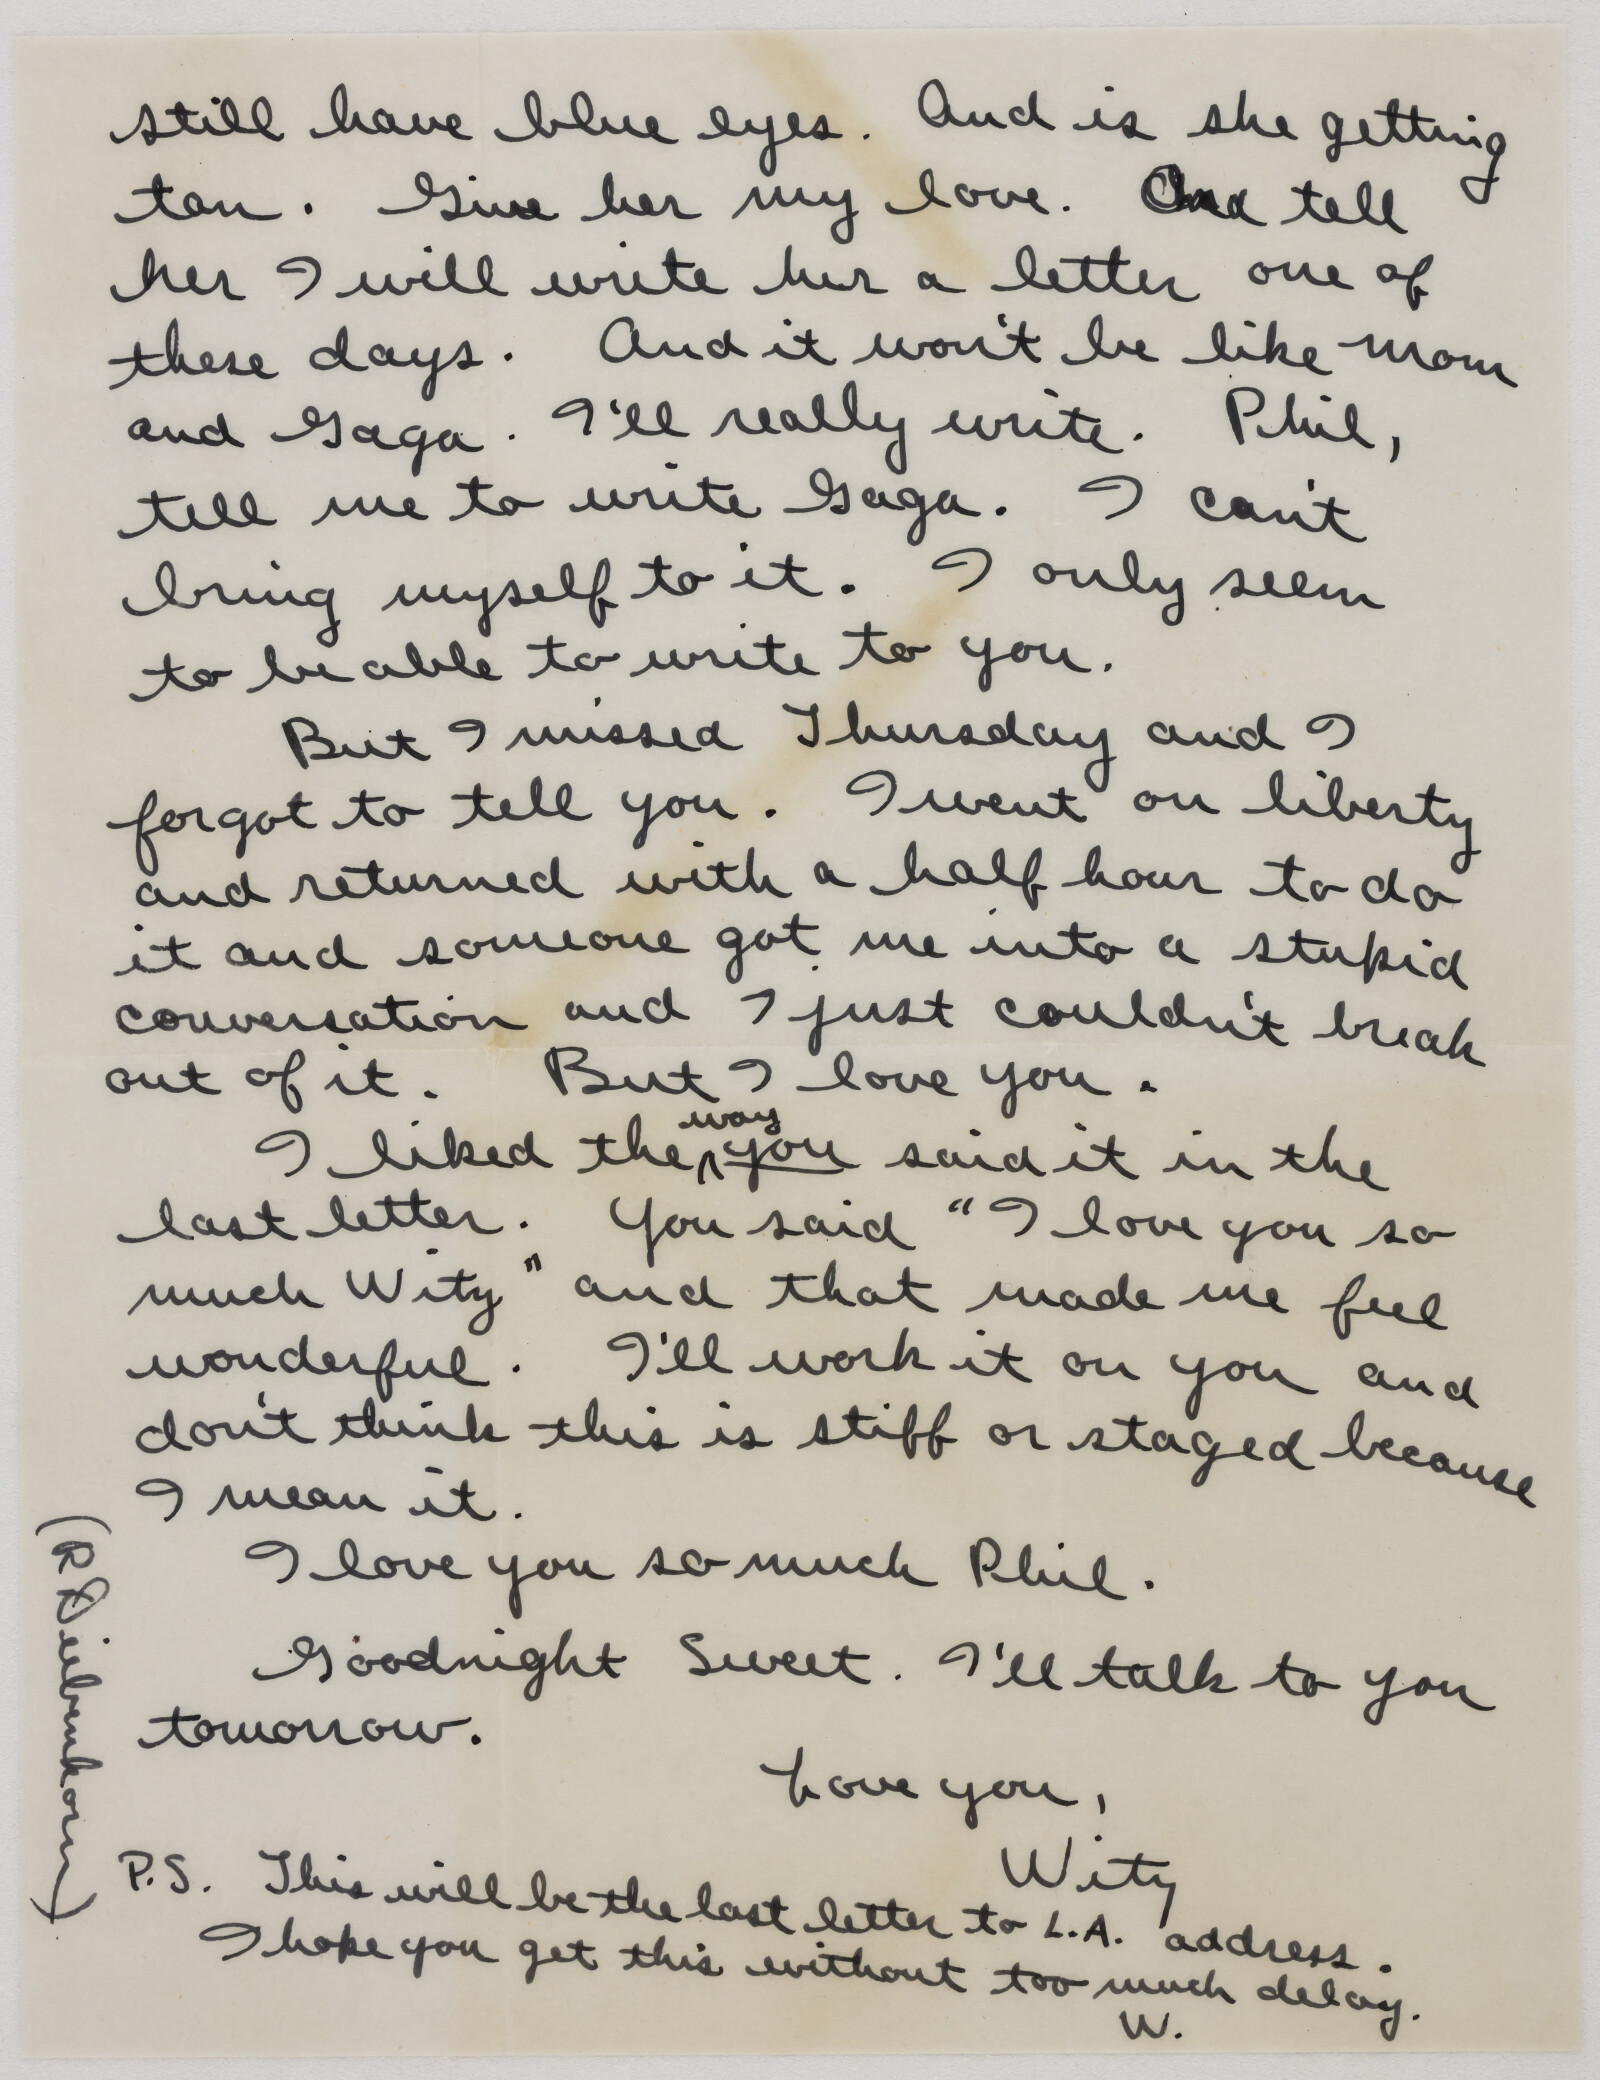 still have blue eyes. And is she getting
tan. Give her my love. And tell
her I will write her a letter one of
these days. And it won't be like Mom
and Gaga. I'll really write. Phil,
tell me to write Gaga. I can't
bring myself to it. I only seem
to be able to write to you.
But I missed Thursday and I
forgot to tell you. I went on liberty
and returned with a half hour to do
it and someone got me into a stupid
conversation and I just couldn't break
out of it. But I love you.
I liked the way you said it in the
last letter. You said "I love you so
much Wity" and that made me feel
wonderful. I'll work it on you and
don't think this is stiff or staged because
I mean it.
I love you so much Phil.
Goodnight Sweet. I'll talk to you
tomorrow.
Love you,
Wity
(R Diebenkorn)
P.S. This will be the last letter to L.A. address.
I hope you get this without too much delay.
W.